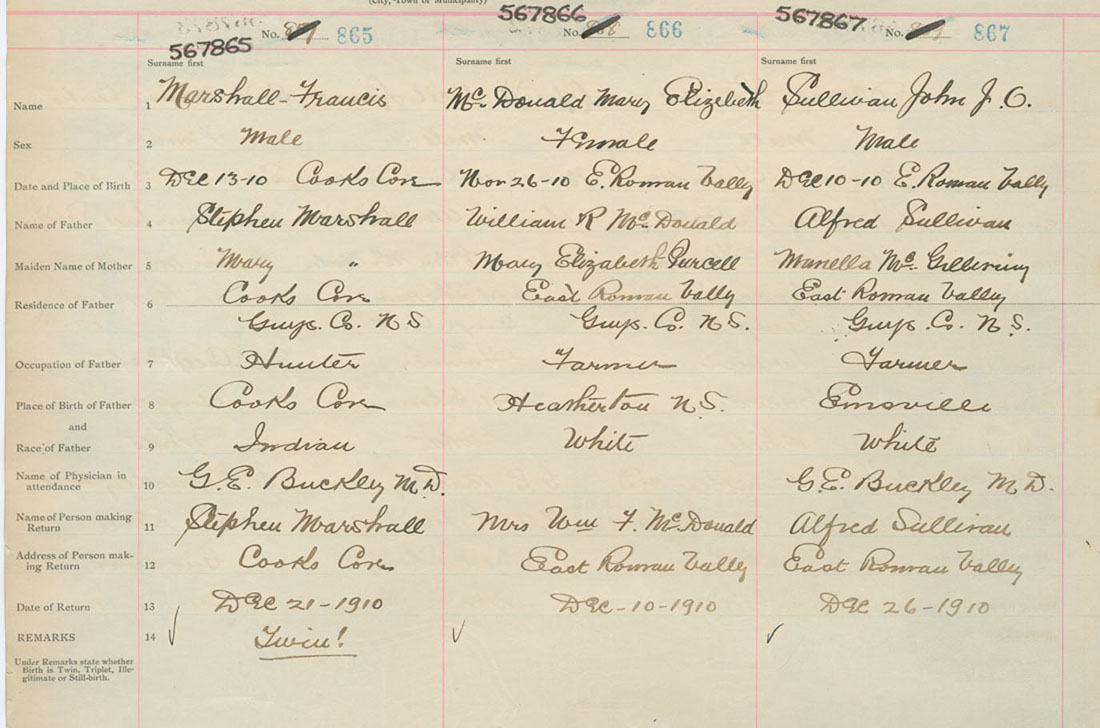 (City, Town or Municipality)
567865 No. 865
567866 No. 866
567867 No. 867
Surname first Surname first Surname first
Name 1 Marshall-Francis Mc. Donald Mary Elizabeth Sullivan John J. O.
Sex 2 Male Female Male
Date and Place of Birth 3 Dec 13-10 Cooks Cove Nov 26-10 E. Roman Vally Dec 10-10 E. Roman Vally
Name of Father 4 Stephen Marshall William R Mc. Donald Alfred Sullivan
Maiden Name of Mother 5 Mary " Mary Elizabeth Purcell Mc.
Residence of Father 6 Cooks Cove East Roman Vally East Roman Valley
Guys. Co. N S Guys. Co. N S. Guys. Co. N S.
Occupation of Father 7 Hunter Farmer Farmer
Place of Birth of Father 8 Cooks Cove Heatherton N. S.
and
Race of Father 9 Indian White White
Name of Physician in
attendance 10 G. E. Buckley M. D. G. E. Buckley M. D.
Name of Person making
Return 11 Stephen Marshall Mrs Wm F. Mc. Donald Alfred Sullivan
Address of Person mak-
ing Return 12 Cooks Cove East Roman Valley East Roman Valley
Date of Return 13 Dec 21-1910 Dec-10-1910 Dec 26-1910
REMARKS 14 Twin!
Under Remarks state whether
Birth is Twin, Triplet, Ille-
gitimate or Still-birth.